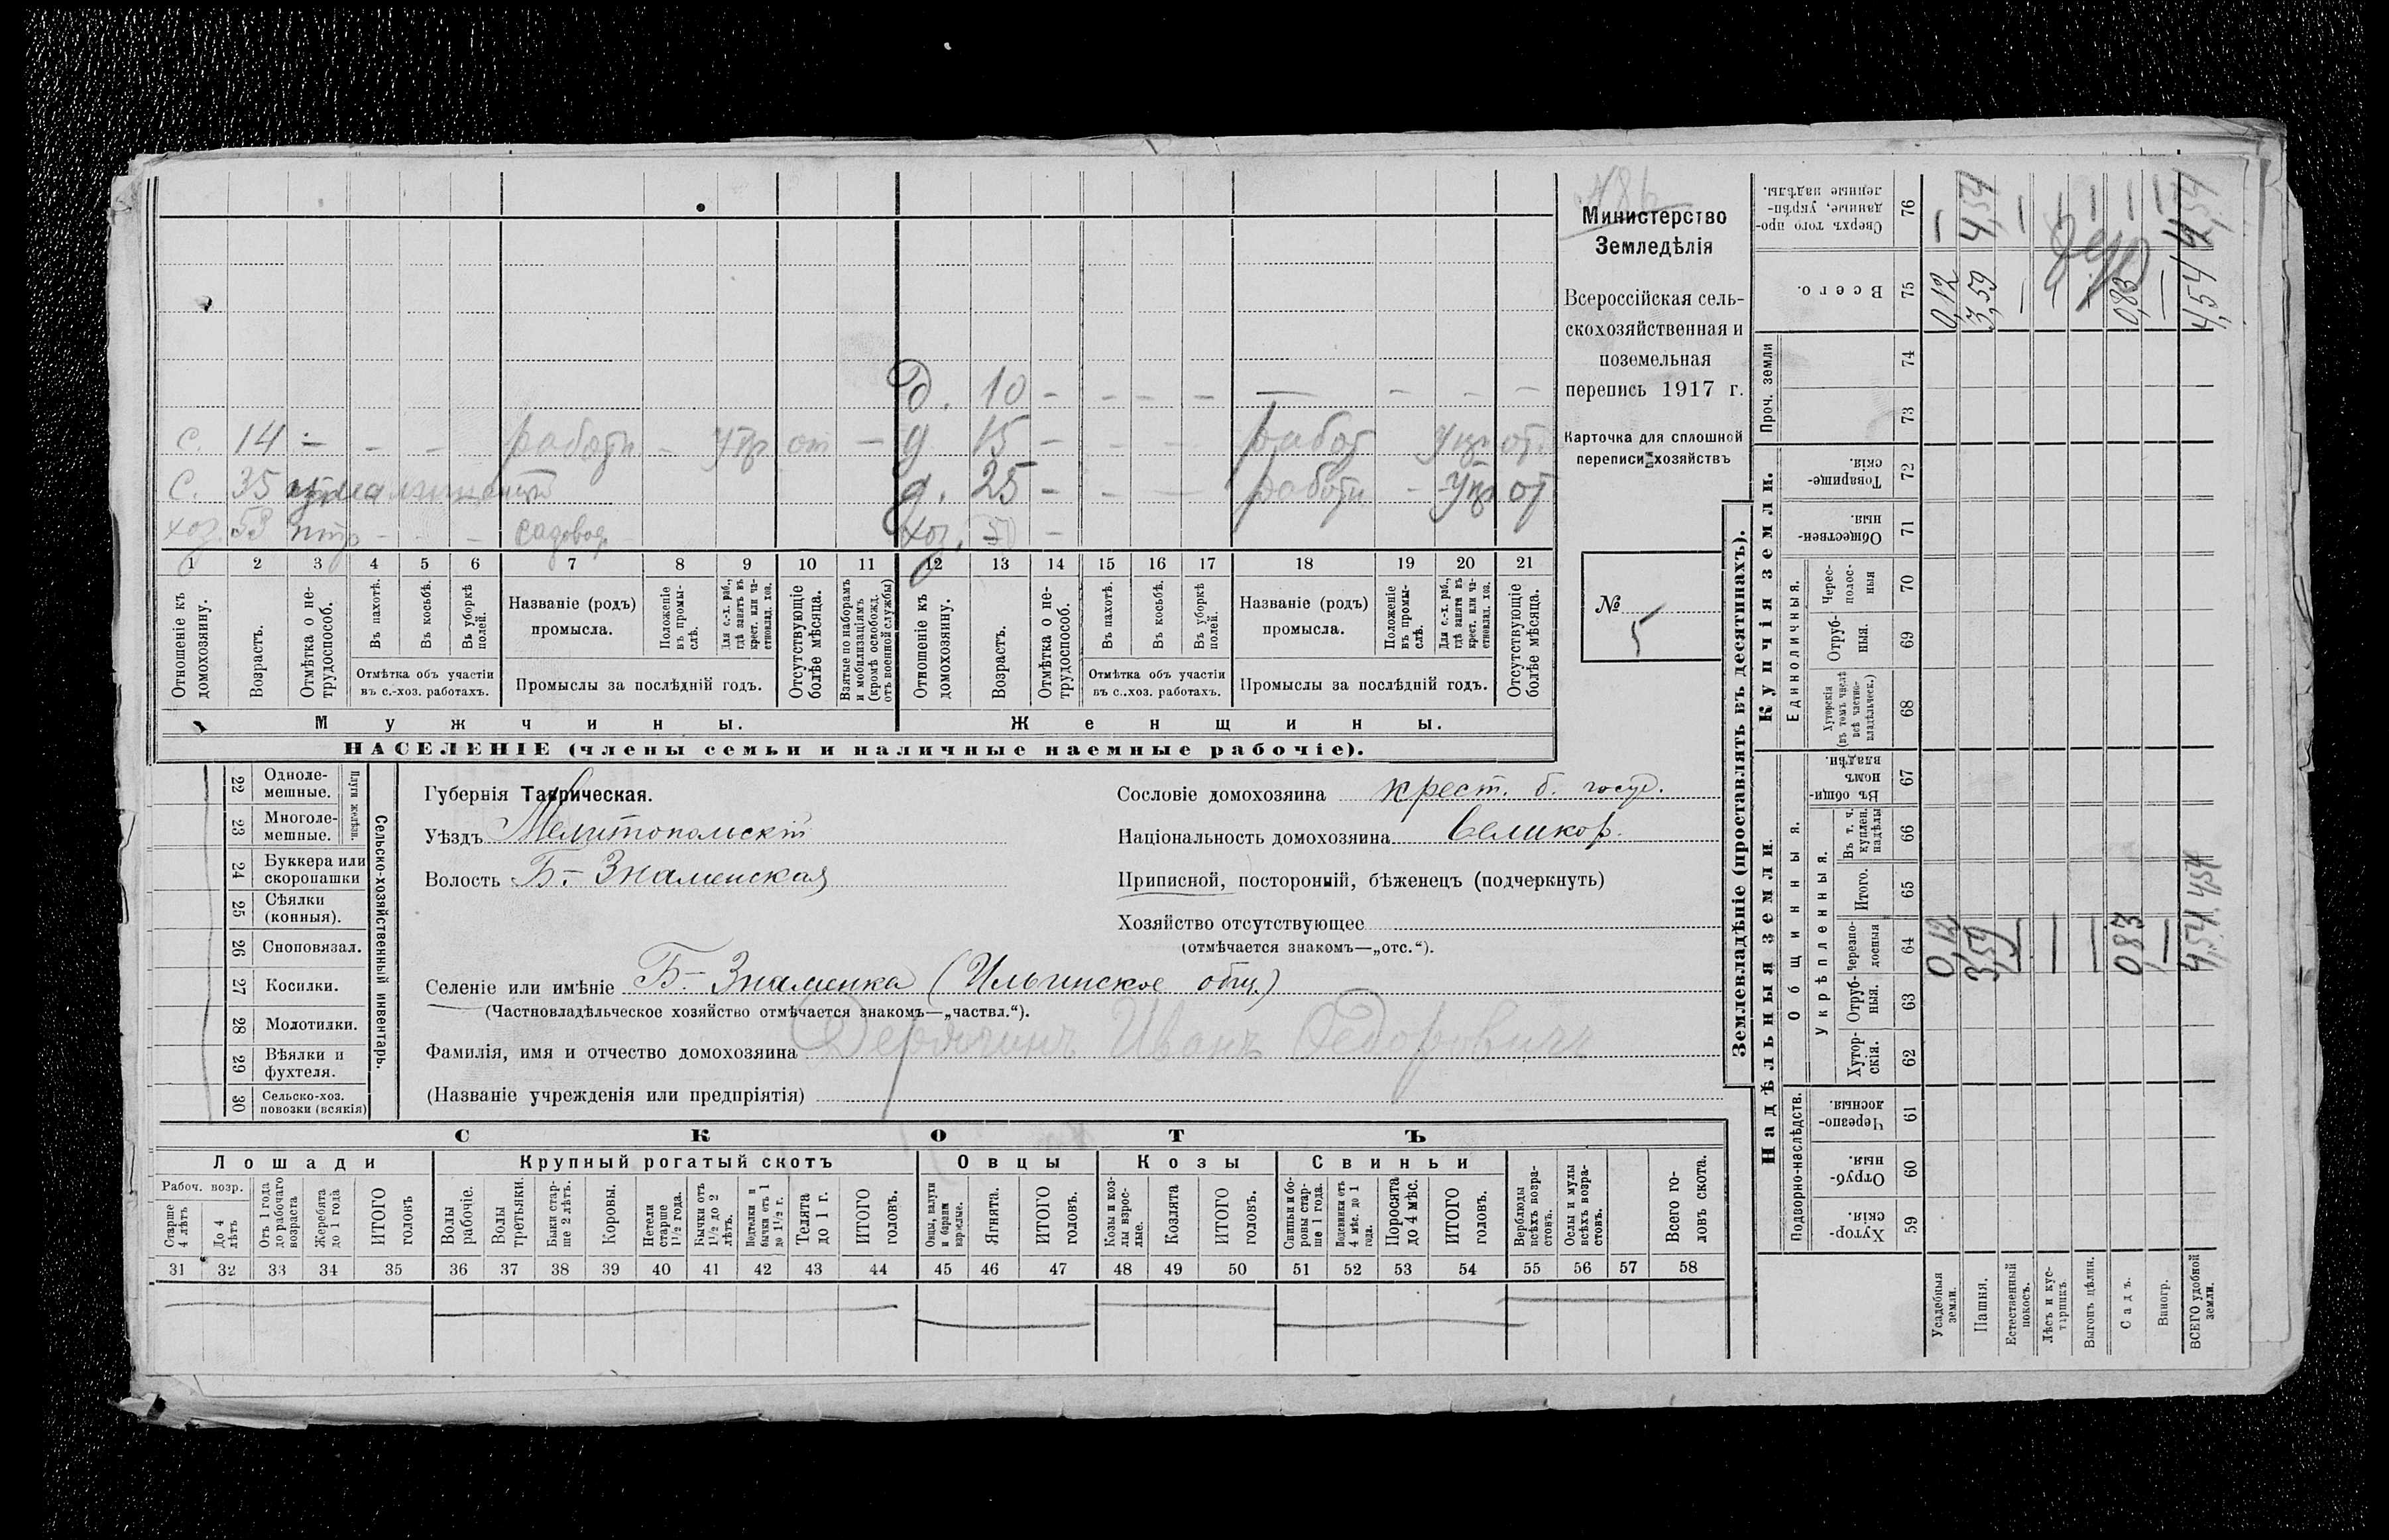 Министерство
Земледѣлія
Всероссійская сель-
скохозяйственная и
поземельная
перепись 1917 г.
Карточка для сплошной
переписи хозяйствъ
№ 5
д. 10 - - - - — - - -
с. 14 - - - работн. - от - д 15 - - - работ от.
с. 35 д. 25 - - - работн - от
хоз. 53 - - - садовод хоз. -
1 2 3 4 5 6 7 8 9 10 11 12 13 14 15 16 17 18 19 20 21
Отношеніе къ домохозяину.
Возрастъ.
Отмѣтка о не-трудоспособ.
Въ пахотѣ.
Въ косьбѣ.
Въ уборкѣ полей.
Отмѣтка объ участіи
въ с.-хоз. работахъ.
Названіе (родъ)
промысла.
Положеніе въ промы-слѣ.
Для с.-х. раб., гдѣ занятъ въ крест. или ча-стновлад. хоз.
Промыслы за послѣдній годъ.
Отсутствующіе болѣе мѣсяца.
Взятые по наборамъ и мобилизаціямъ (кромѣ освобожд. отъ военной службы)
Отношеніе къ домохозяину.
Возрастъ.
Отмѣтка о не-трудоспособ.
Въ пахотѣ.
Въ косьбѣ.
Въ уборкѣ полей.
Отмѣтка объ участіи
въ с..хоз. работахъ.
Названіе (родъ)
промысла.
Положеніе въ промы-слѣ.
Для с.-х. раб., гдѣ занята въ крест. или ча-стновлад. хоз.
Промыслы за послѣдній годъ.
Отсутствующіе болѣе мѣсяца.
Мужчины. Женщины.
НАСЕЛЕНІЕ (члены семьи и наличные наемные рабочіе).
Сельско-хозяйственный инвентарь.
Плуги желѣзн.
22 Одноле-мешные.
23 Многоле-мешные.
24 Буккера или скоропашки
25 Сѣялки (конныя).
26 Сноповязал.
27 Косилки.
28 Молотилки.
29 Вѣялки и фухтеля.
30 Сельско-хоз. повозки (всякія)
Губернія Таврическая.
Уѣздъ Мелитопольскій
Волость Б.- Знаменская
Сословіе домохозяина крест. б. госуд.
Національность домохозяина великор.
Приписной, посторонній, бѣженецъ (подчеркнуть)
Хозяйство отсутствующее
(отмѣчается знакомъ—„отс.“).
Селеніе или имѣніе Б.- Знаменка (Ильинское общ.)
(Частновладѣльческое хозяйство отмѣчается знакомъ—„частвл.“).
Фамилія, имя и отчество домохозяина Иванъ Федоровичъ
(Названіе учрежденія или предпріятія)
СКОТЪ
Лошади Крупный рогатый скотъ Овцы Козы Свиньи
Рабоч. возр.
Старше 4 лѣтъ
До 4 лѣтъ
Отъ 1 года до рабочаго возраста
Жеребята до 1 года
ИТОГО головъ
Волы рабочіе.
Волы третьяки.
Быки стар-ше 2 лѣтъ.
Коровы.
Нетели старше 1½ года.
Бычки отъ 1½ до 2 лѣтъ.
Подтелки и бычки отъ 1 до 1½ г.
Телята до 1 г.
ИТОГО головъ.
Овцы, валухи и бараны взрослые.
Ягнята.
ИТОГО головъ.
Козы и коз-лы взрос-лые.
Козлята
ИТОГО головъ.
Свиньи и бо-ровы стар-ше 1 года.
Подсвинки отъ 4 мѣс. до 1 года.
Поросята до 4 мѣс.
ИТОГО головъ.
Верблюды всѣхъ возра-стовъ.
Ослы и мулы всѣхъ возра-стовъ.
Всего го-ловъ скота.
31 32 33 34 35 36 37 38 39 40 41 42 43 44 45 46 47 48 49 50 51 52 53 54 55 56 57 58
Землевладѣніе (проставлять въ десятинахъ).
Сверхъ того про-данные, укрѣп-ленные надѣлы. 76 — 4,54 — — — — — 4,54
Всего. 75 0,12 3,59 — — — 0,83 — 4,54
Проч. земли
74
73
Купчія земли.
Товарище-скія. 72
Обществен-ныя. 71
Единоличныя.
Черес-полос-ныя 70
Отруб-ныя. 69
Хуторскія (въ томъ числѣ всѣ частно-владѣльческ.) 68
Надѣльныя земли.
Общинныя.
Въ общи-номъ владѣн. 67
Укрѣпленныя.
Въ т. ч. куплен. надѣлы 66
Итого. 65 4,54
Черезпо-лосныя 64 0,12 3,59 — — — 0,83 — 4,54
Отруб-ныя. 63
Хутор-скія. 62
Подворно-наслѣдств.
Черезпо-лосныя. 61
Отруб-ныя. 60
Хутор-скія. 59
Усадебныя земли.
Пашня.
Естественный покосъ.
Лѣсъ и кус-тарникъ.
Выгонъ цѣлин.
Садъ.
Виногр.
ВСЕГО удобной земли.